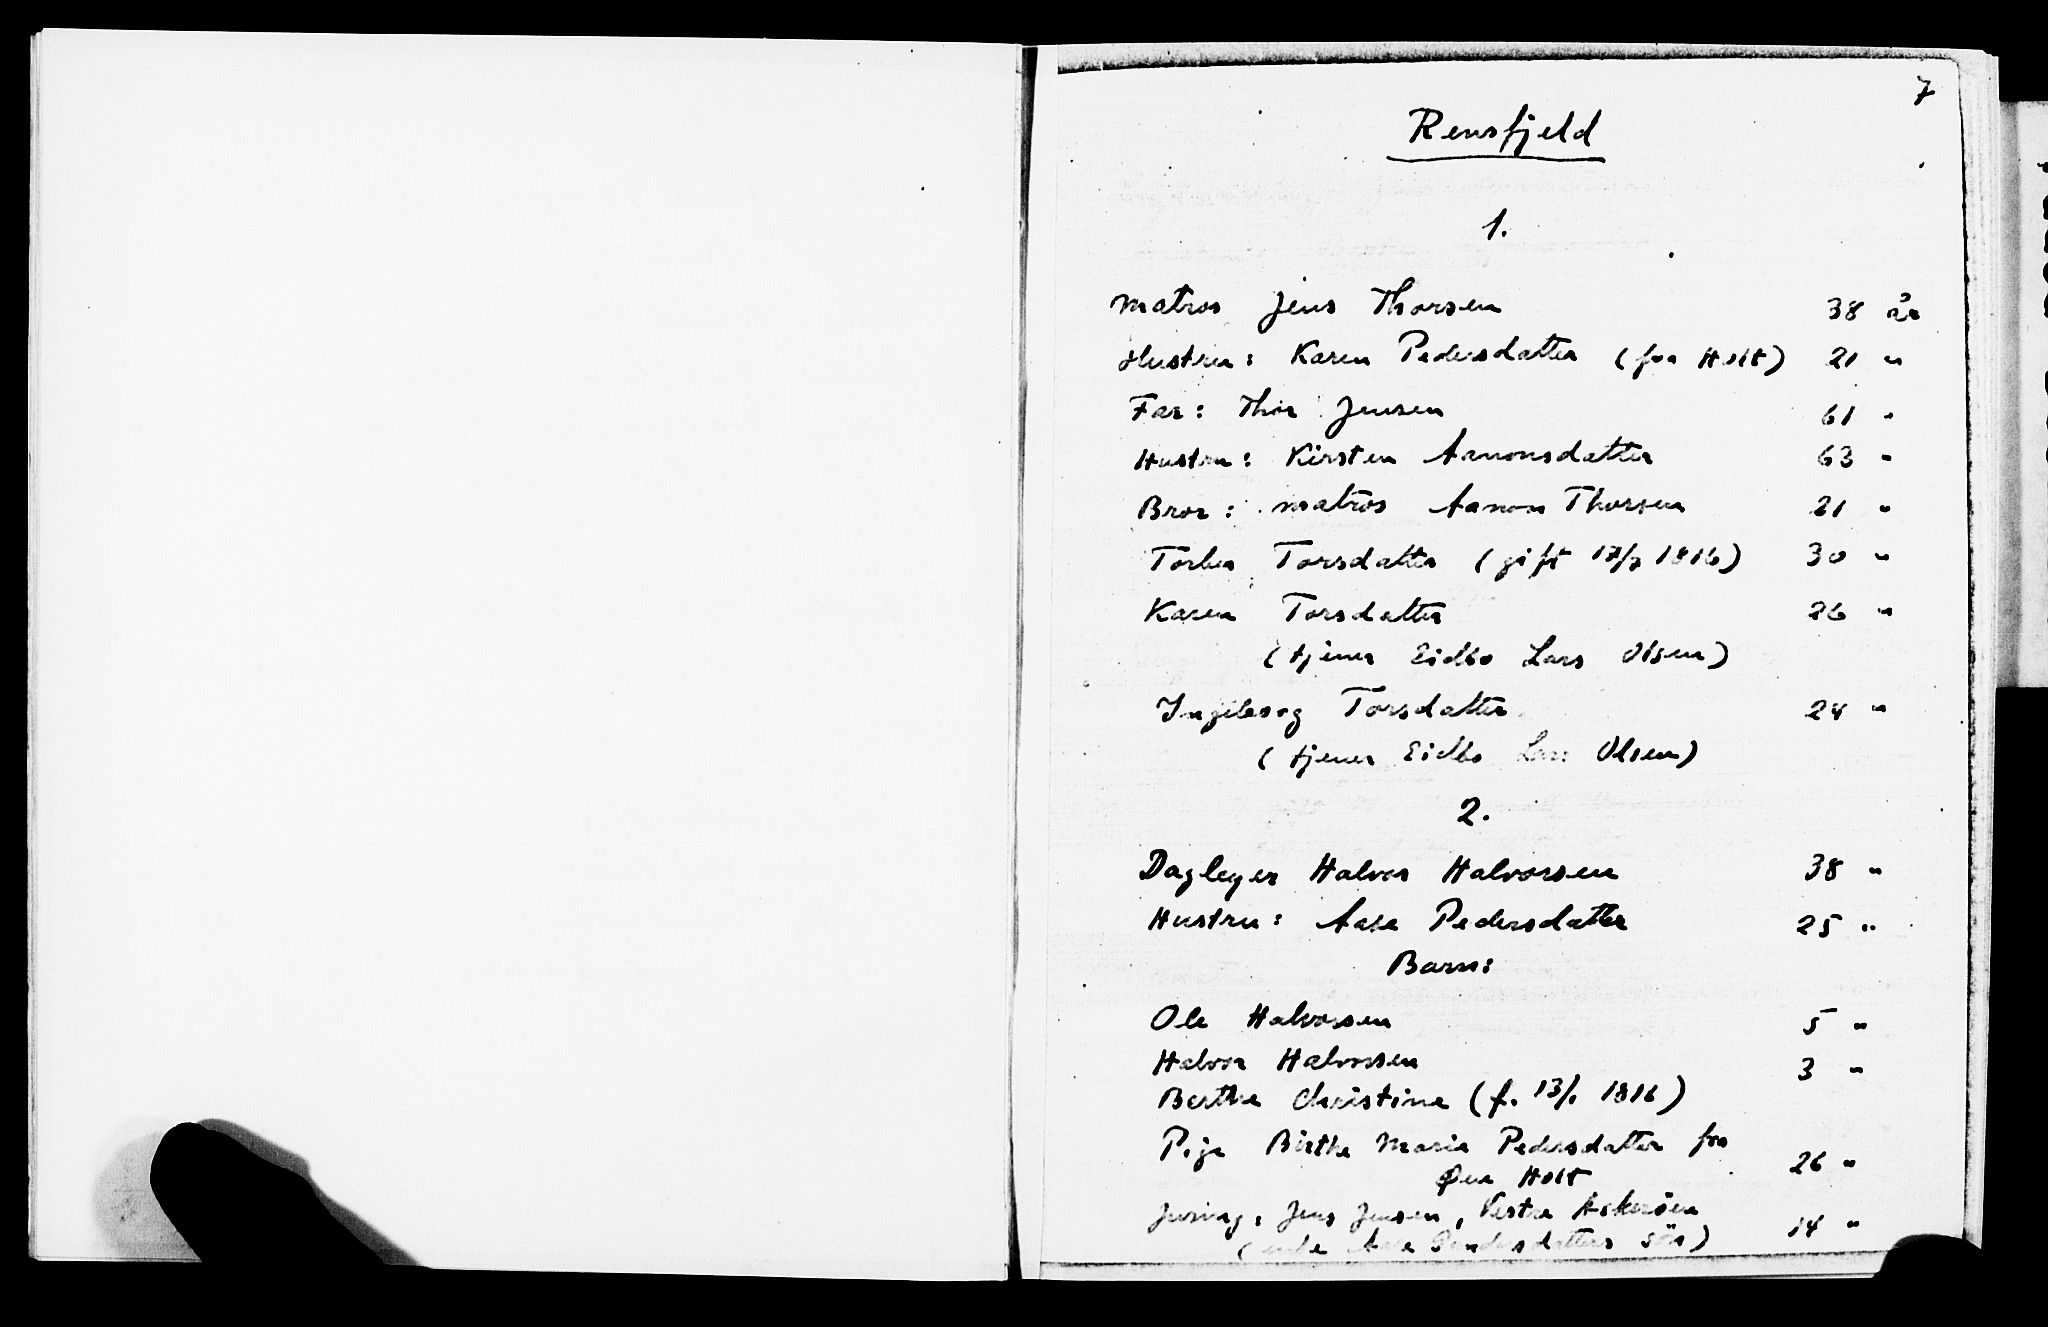 7
Rensfjeld
1.
Matros Jens Thorsen 38 år
Hustru: Karen Pedersdatter (fra Holt) 21 "
Far: Thor Jensen 61 "
Hustru: Kirsten Aanonsdatter 63 "
Bror: matros Aanon Thorsen 21 "
Torbor Torsdatter (gift 17/7 1816) 30 "
Karen Torsdatter 26 "
(tjener Eidbo Lars Olsen)
Ingeborg Torsdatter 24 "
(tjener Eidbo Lars Olsen)
2.
Dagleyer Halvor Halvorsen 38 "
Hustru: Aase Pedersdatter 25 "
Barn:
Ole Halvorsen 5 "
Halvor Halvorsen 3 "
Berthe Christine (f. 13/1 1816)
Pige Birthe Marie Pedersdatter fra 26 "
Øen Holt
Jens Jensen, Vestre Askerøen 14 "
(enke Aase søn)